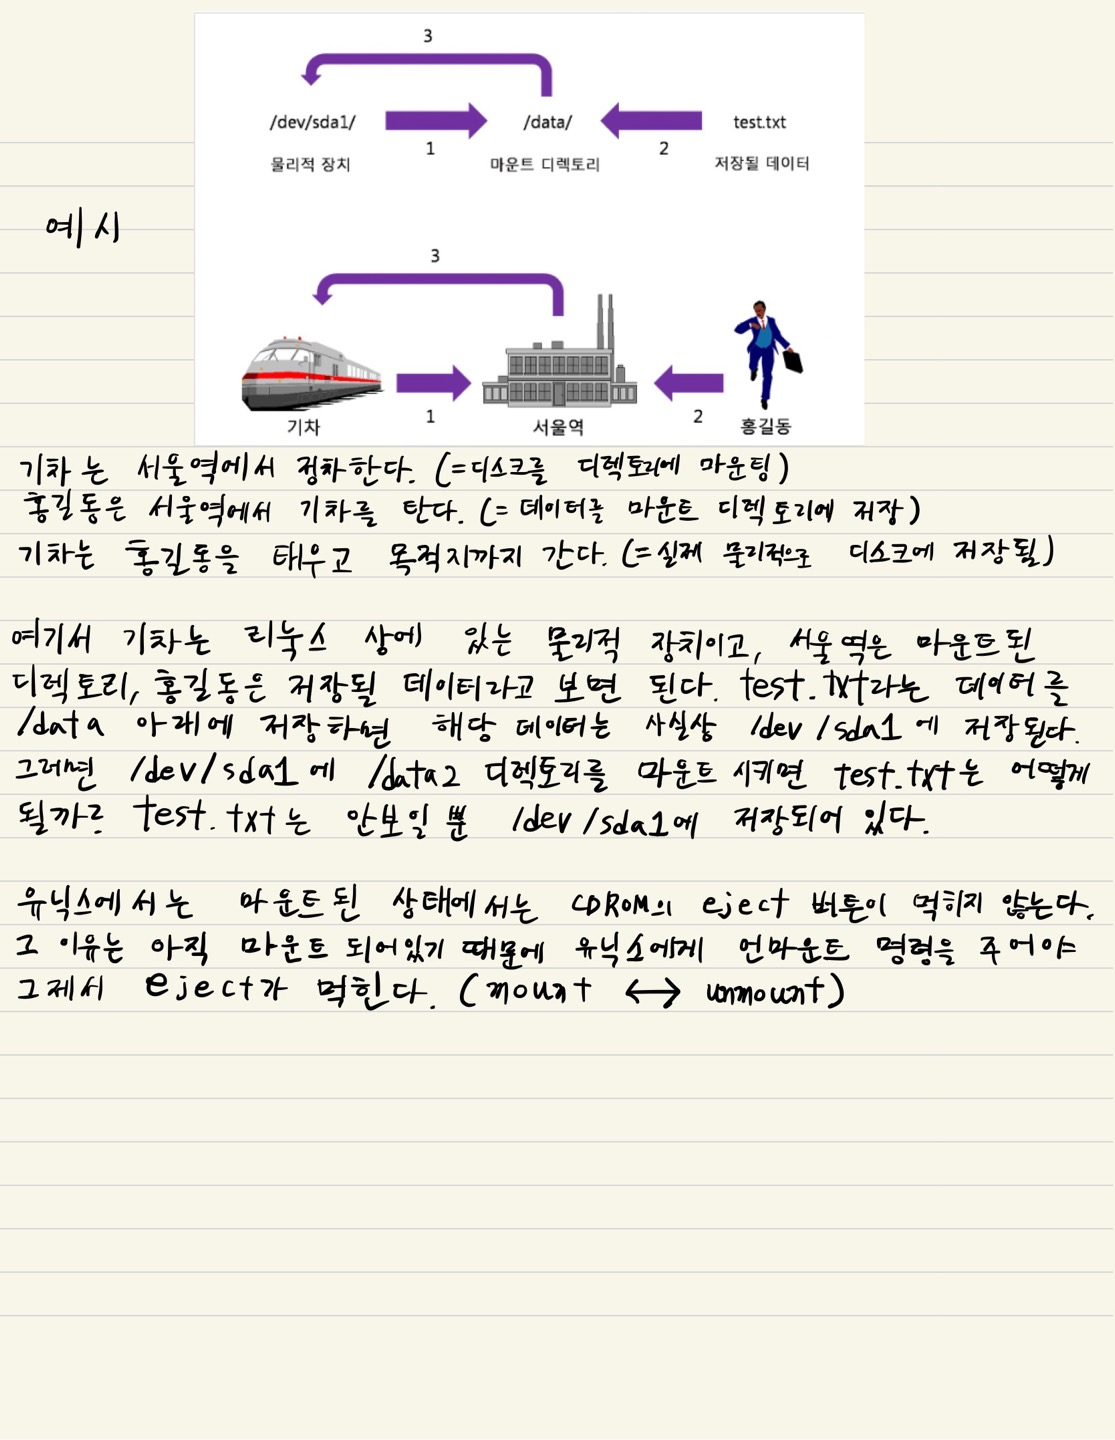 3
/dev/sda1/ /data/ test.txt
1 2
물리적 장치 마운트 디렉토리 저장될 데이터
예시
3
1 2
기차 서울역 홍길동
기차는 서울역에서 정차한다. (=디스크를 디렉토리에 마운팅)
홍길동은 서울역에서 기차를 탄다. (= 데이터를 마운트 디렉토리에 저장)
기차는 홍길동을 태우고 목적지까지 간다. (=실제 물리적으로 디스크에 저장될)
여기서 기차는 리눅스 상에 있는 물리적 장치이고, 서울역은 마운트된
디렉토리, 홍길동은 저장될 데이터라고 보면 된다. test.txt라는 데이터를
/data 아래에 저장하면 해당 데이터는 사실상 /dev/sda1에 저장된다.
그러면 /dev/sda1에 /data2 디렉토리를 마운트 시키면 test.txt는 어떻게
될까? test.txt는 안보일 뿐 /dev/sda1에 저장되어 있다.
유닉스에서는 마운트된 상태에서는 CDROM의 eject 버튼이 먹히지 않는다.
그 이유는 아직 마운트 되어있기 때문에 유닉스에게 언마운트 명령을 주어야
그제서 eject가 먹힌다. (mount ↔ unmount)